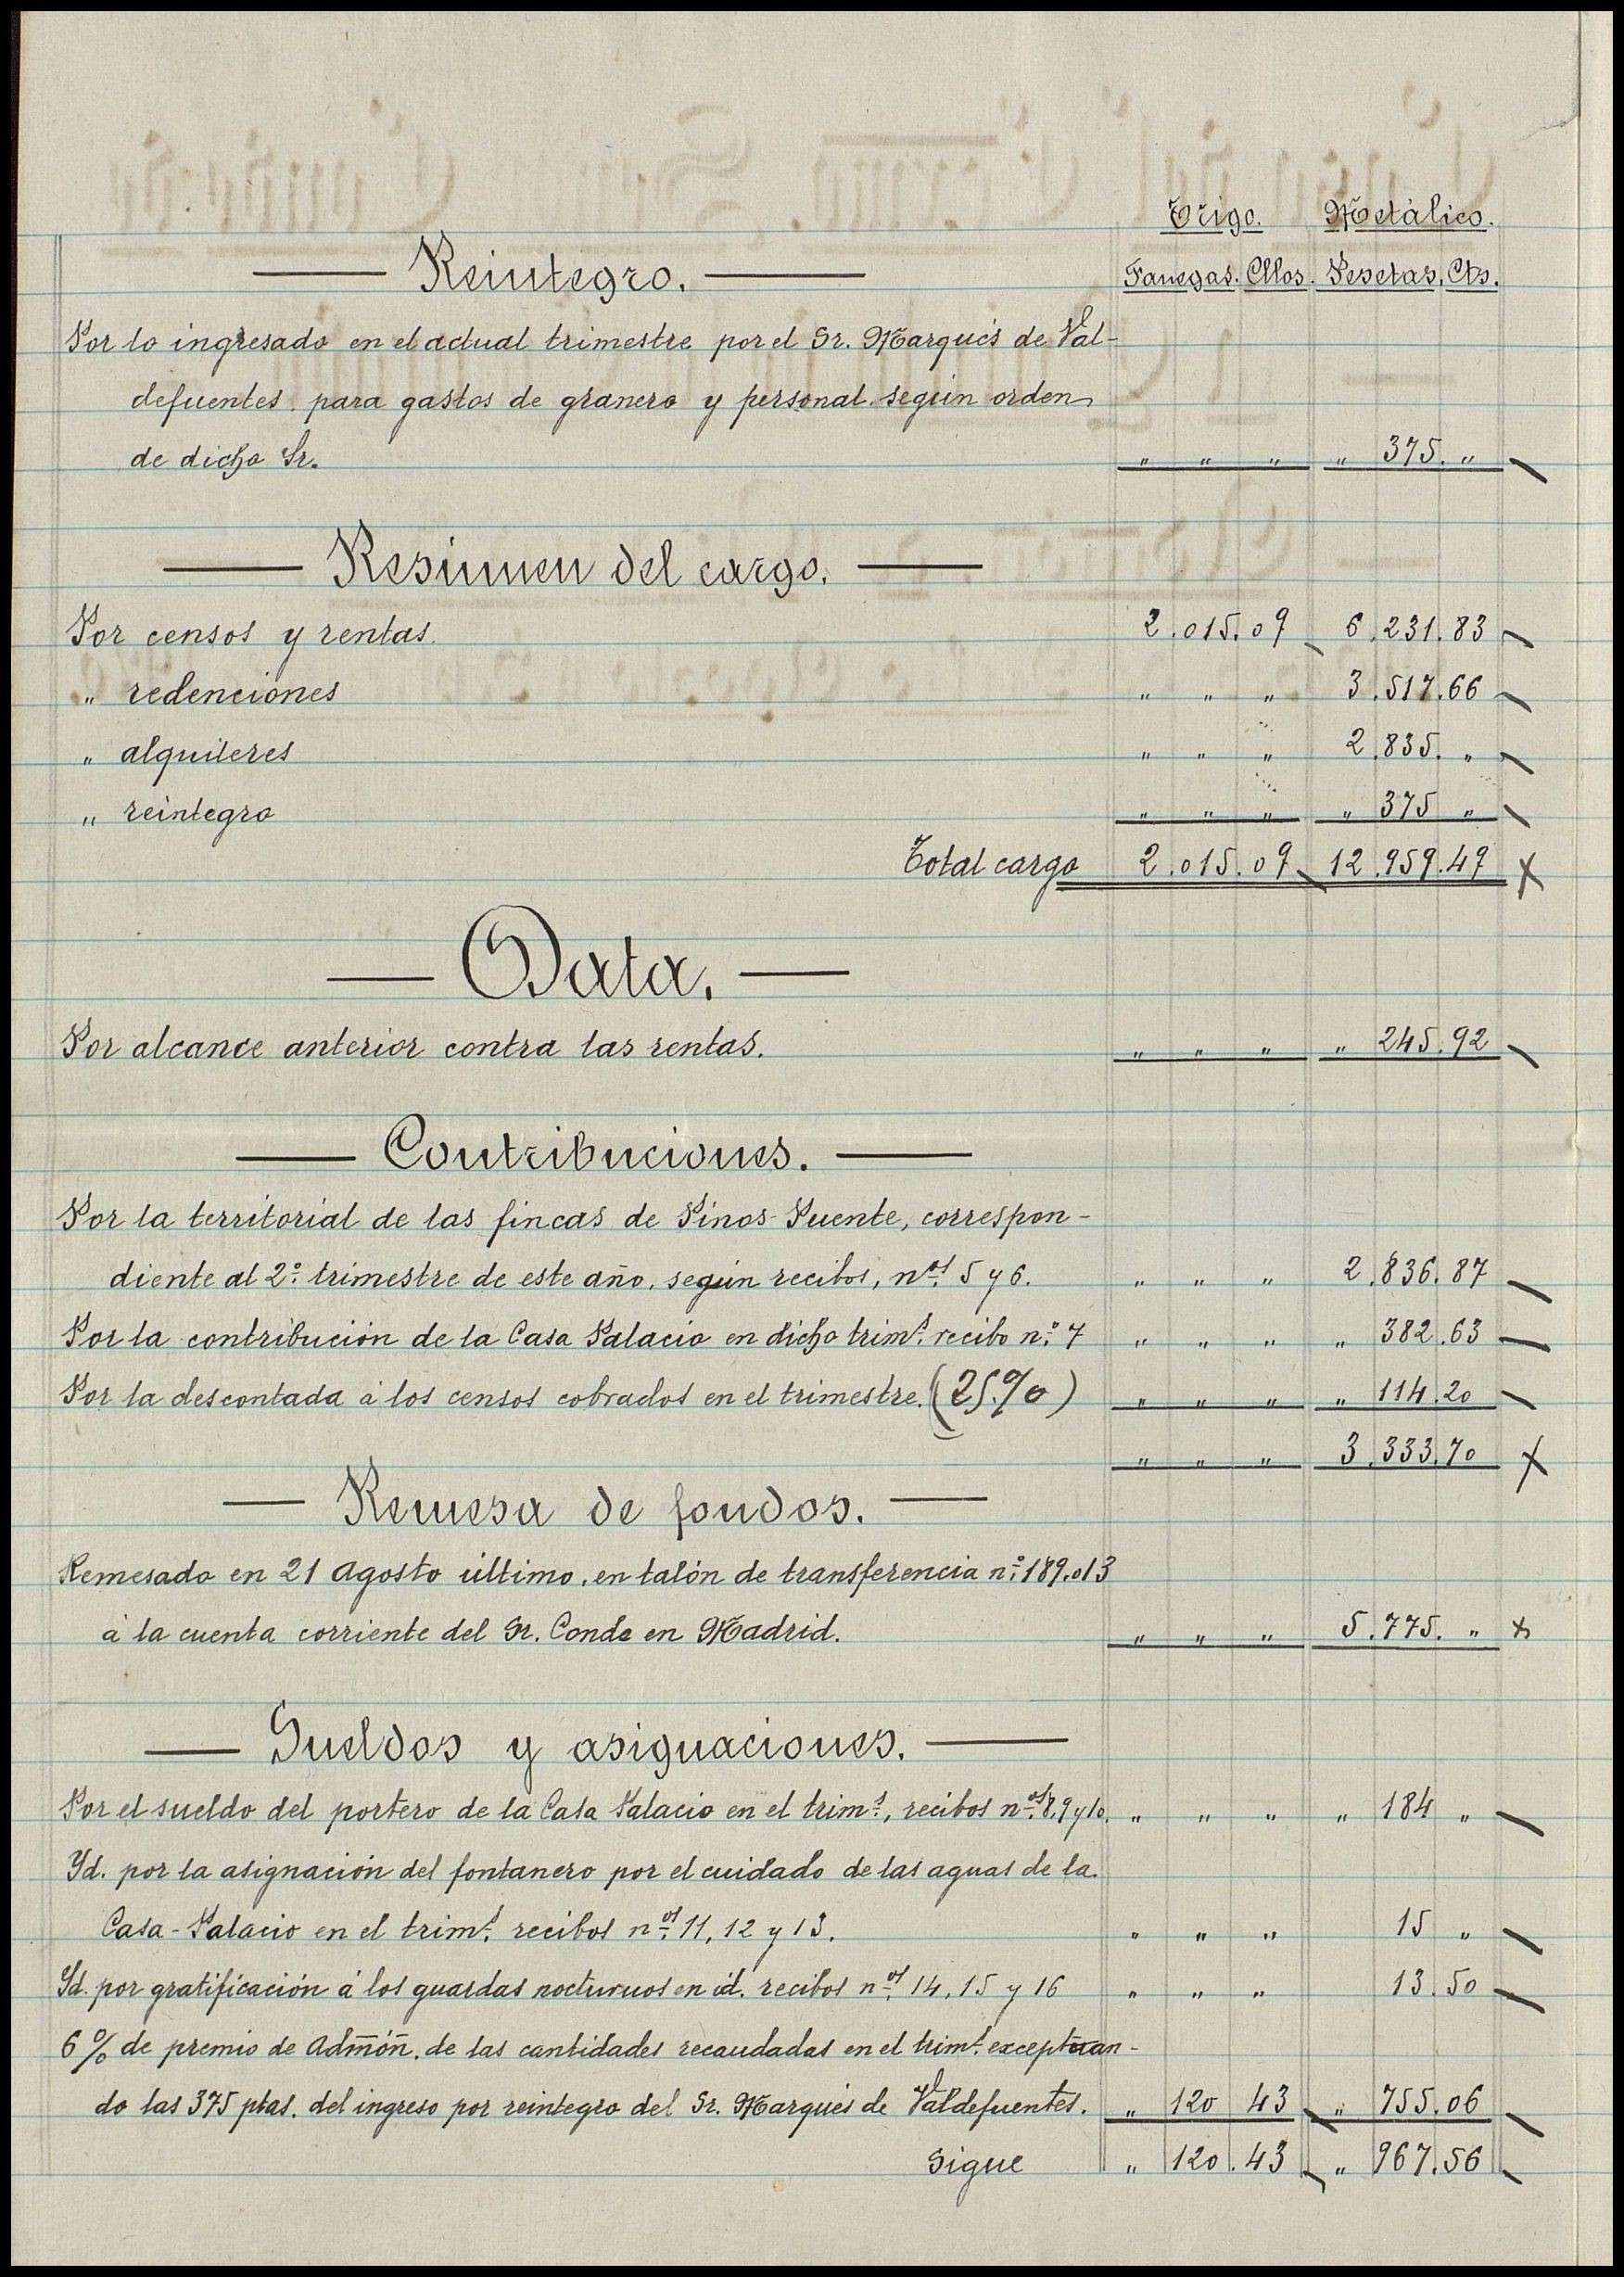 Trigo. Metálico.
Reintegro. Fanegas. Cllos. Pesetas, Cts.
Por lo ingresado en el actual trimestre por el Sr. Marqués de Val-
defuentes, para gastos de granero y personal según orden
de dicho Sr. " " " " 375. "
Resúmen del cargo.
Por censos y rentas. 2.015.09 6.231.83
" redenciones " " " 3.517.66
" alquileres " " " 2.835. "
" reintegro " " " " 375 "
Total cargo 2.015.09 12.959.49
Data.
Por alcance anterior contra las rentas. " " " " 245.92
Contribuciones.
Por la territorial de las fincas de Pinos-Puente, correspon-
diente al 2º trimestre de este año, según recibos, nos. 5 y 6. " " " 2.836.87
Por la contribución de la Casa Palacio en dicho trime. recibo nº. 7 " " " " 382.63
Por la descontada á los censos cobrados en el trimestre. (25%) " " " " 114.20
" " " 3.333.70
Remesa de fondos.
Remesado en 21 Agosto último, en talón de transferencia nº. 189.013
á la cuenta corriente del Sr. Conde en Madrid. " " " 5.775. "
Sueldos y asignaciones.
Por el sueldo del portero de la Casa Palacio en el trime., recibos nos. 8, 9 y 10. " " " " 184 "
Yd. por la asignación del fontanero por el cuidado de las aguas de la
Casa-Palacio en el trime. recibos nos. 11, 12 y 13. " " " 15 "
Yd. por gratificación á los guardas nocturnos en id. recibos nos. 14, 15 y 16 " " " 13.50
6 % de premio de Admón. de las cantidades recaudadas en el trime. exceptuan-
do las 375 ptas. del ingreso por reintegro del Sr. Marqués de Valdefuentes. " 120 43 " 755.06
Sigue " 120.43 " 967.56